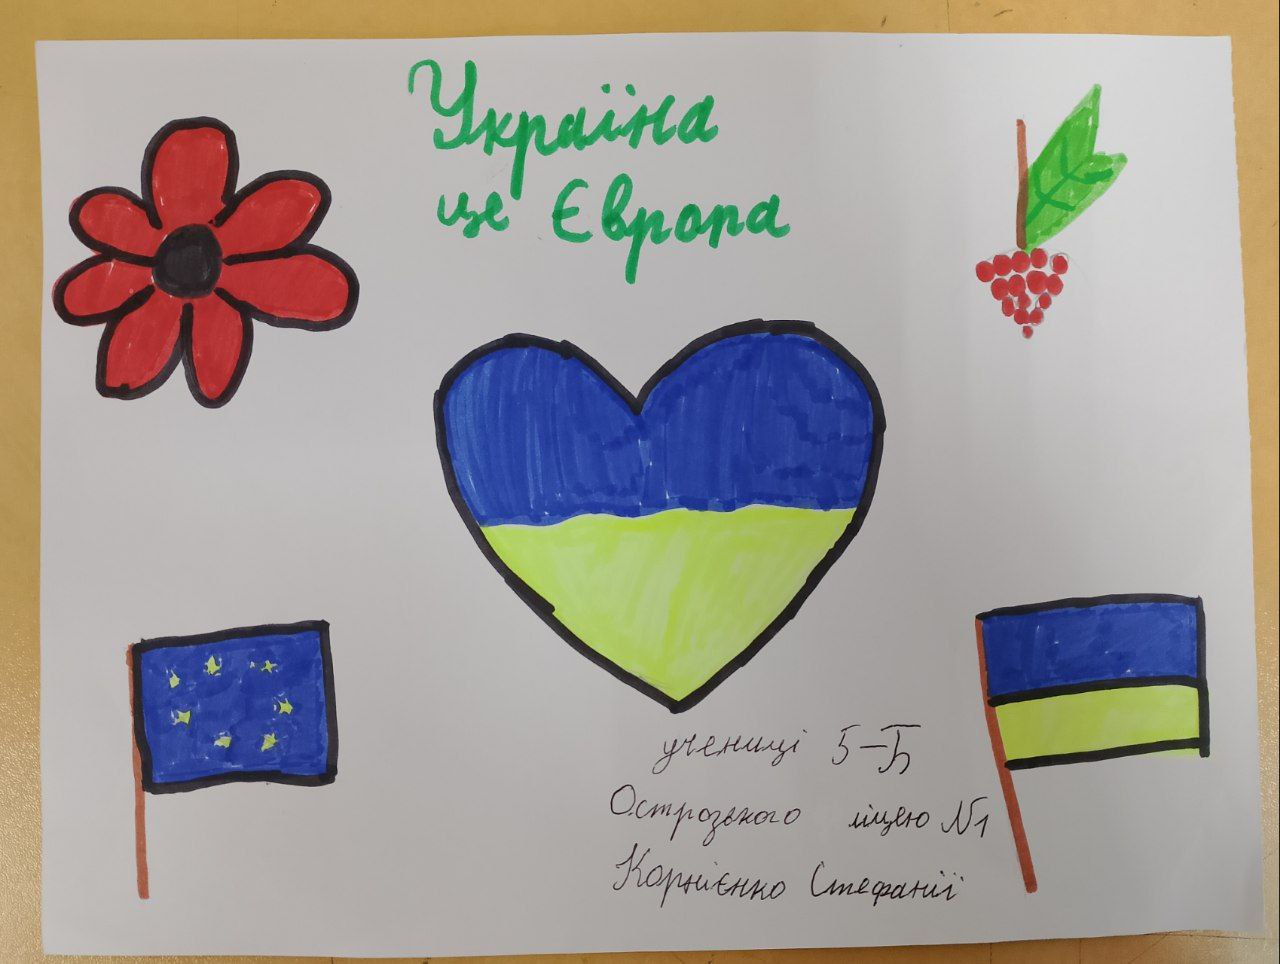 Україна
це Європа
учениці 5-Б
Острозького ліцею №1
Корнієнко Стефанії